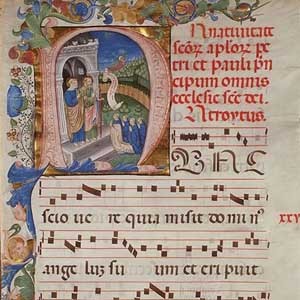 In natiuitate
scōꝝ aplōꝝ pe
tri et pauli pn̄
cipum omnis
ecclesie scē dei.
Introytus.
NUNC
scio ue re quia misit domin9
xxv
ange luz su um et eri puit